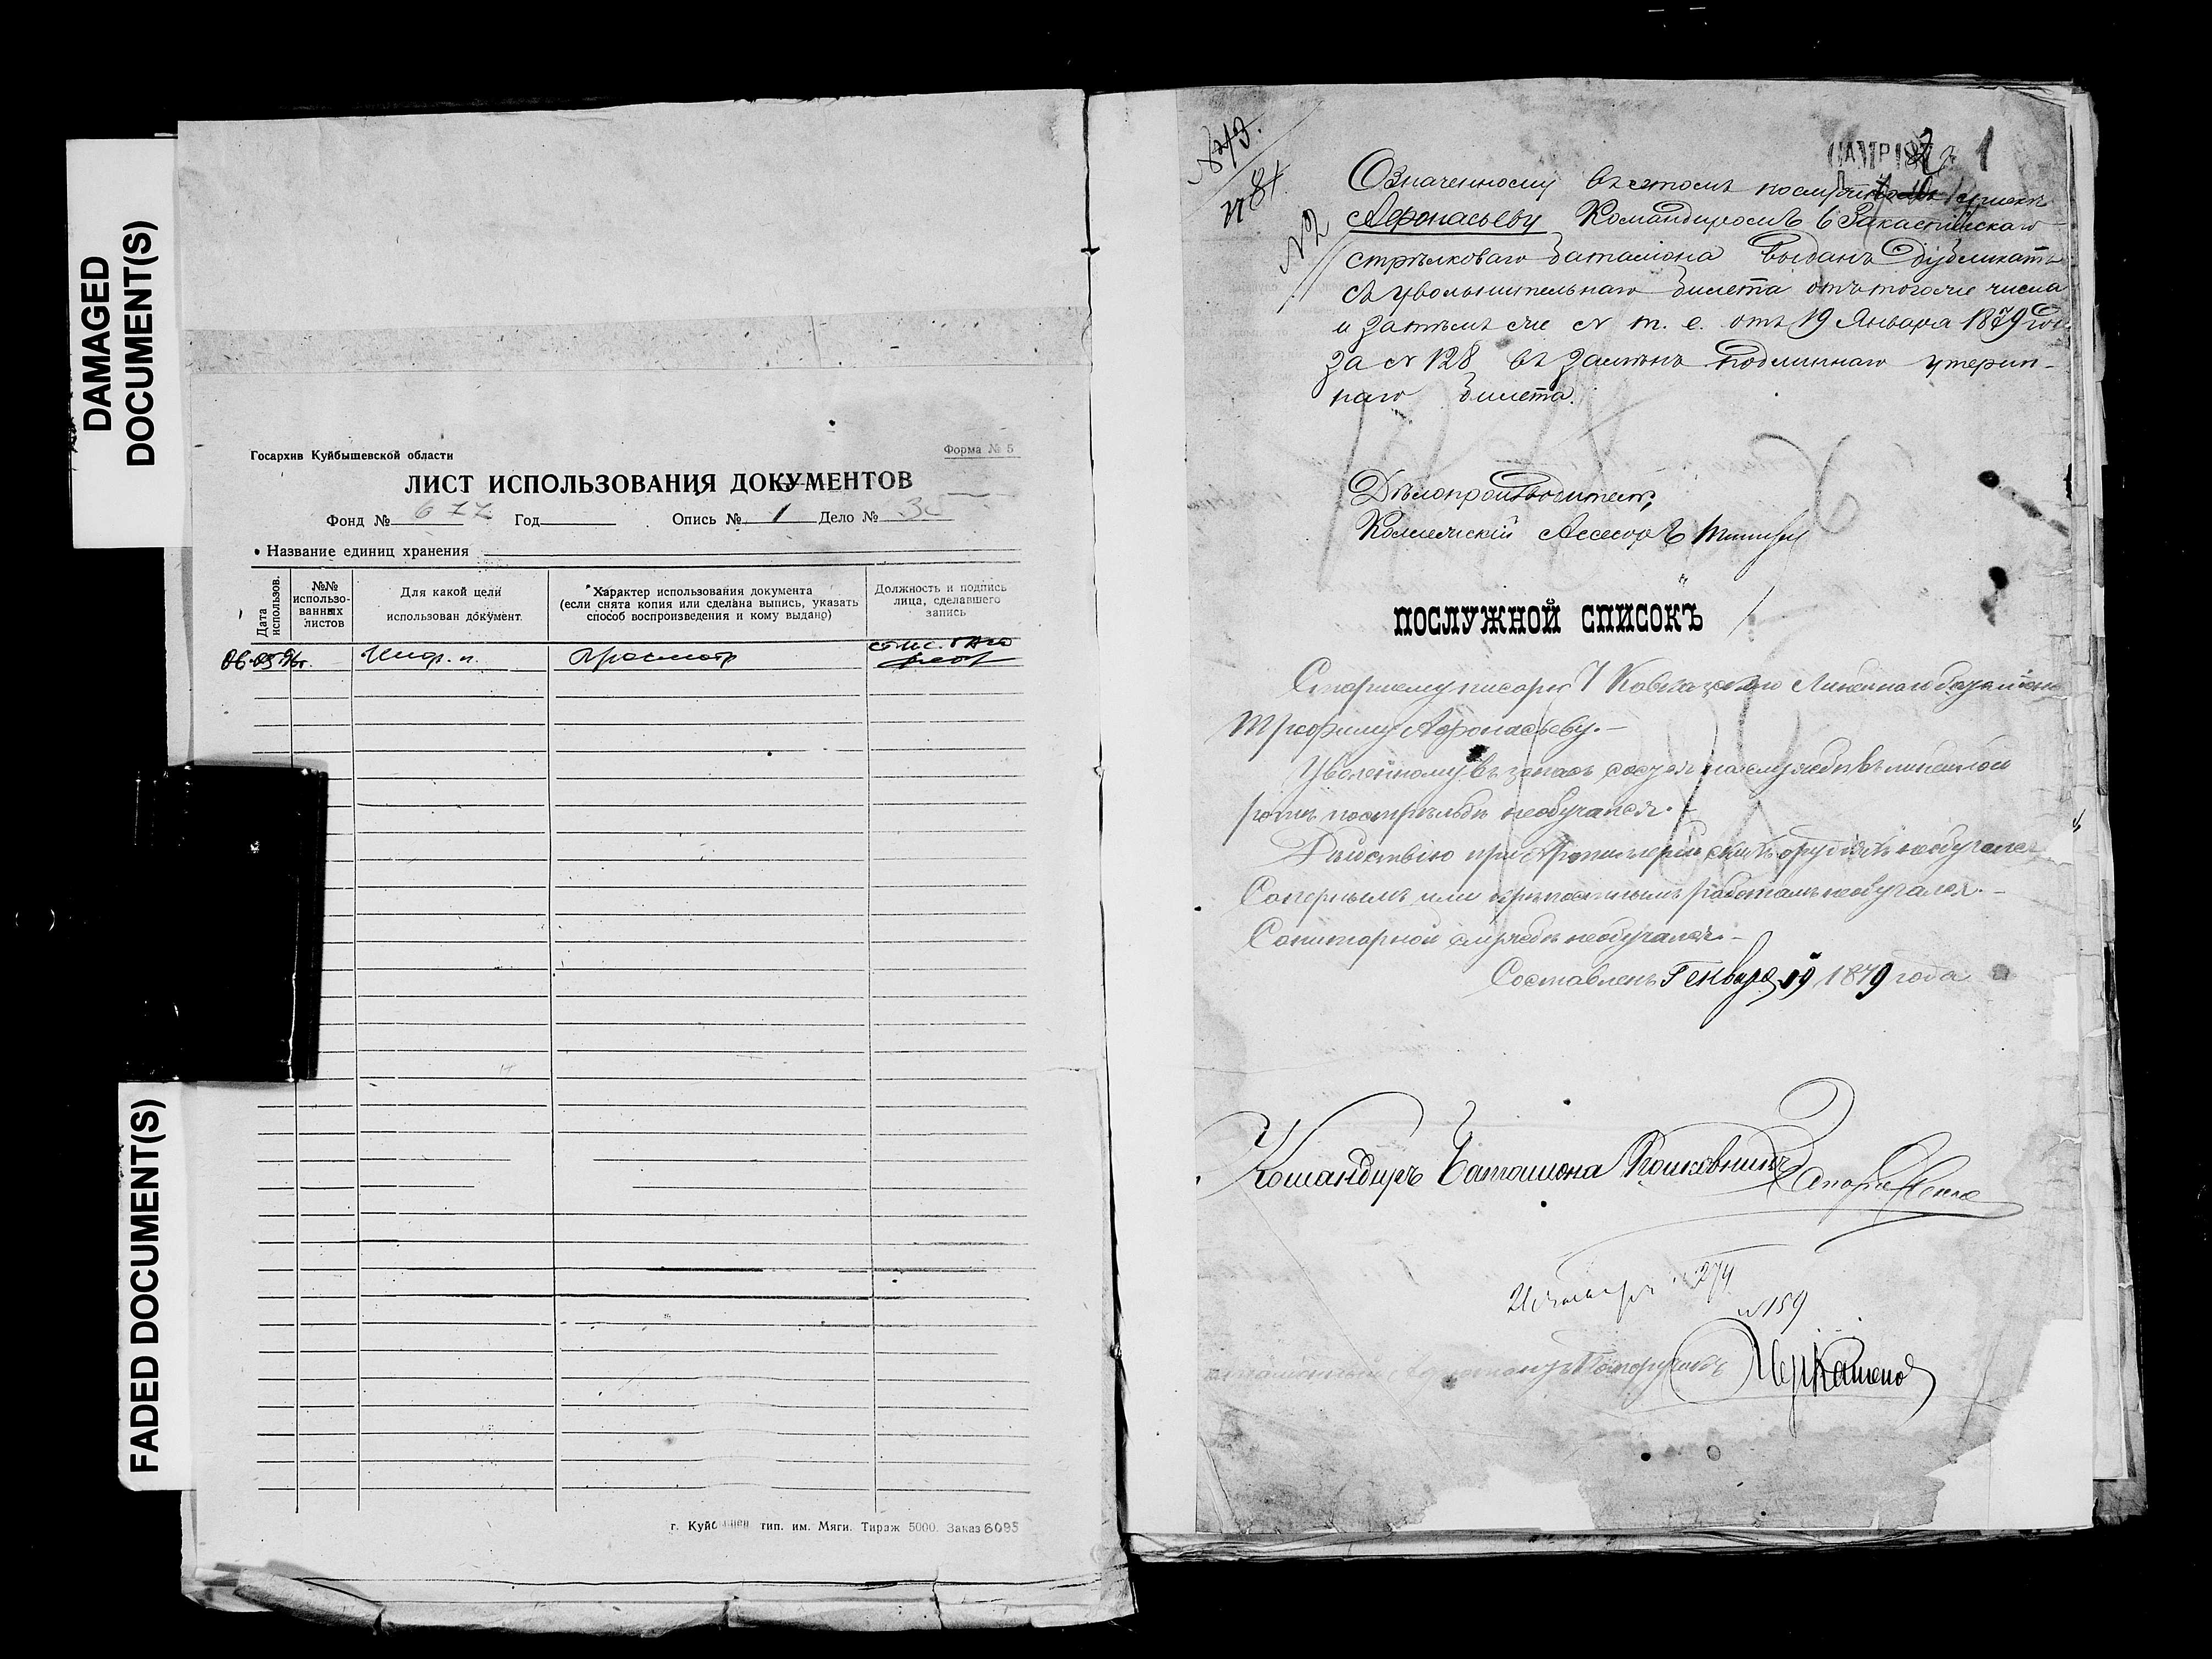 DAMAGED
DOCUMENT(S)
FADED DOCUMENT(S)
Госархив Куйбышевской области
Форма № 5
ЛИСТ ИСПОЛЬЗОВАНИЯ ДОКУМЕНТОВ
Фонд № 677 Год Опись № 1 Дело № 30
Название единиц хранения
Дата использов.
№№ использо-
ванных
листов
Для какой цели
использован документ
Характер использования документа
(если снята копия или сделана выпись, указать
способ воспроизведения и кому выдано)
Должность и подпись
лица, сделавшего
запись
просмотр
г. Куйбышев тип. им. Мяги. Тираж 5000. Заказ 6095
1
№ 2
Означенному въ этомъ послужномъ спискѣ
Афонасьеву Командиромъ 6 Закаспійскаго
стрѣлковаго баталіона выданъ дубликатъ
съ увольнительнаго билета отъ того же числа
и затѣмъ же № т. е. отъ 19 Января 1879 год.
за № 128 въ замѣнъ подлиннаго утерян-
наго билета.
Дѣлопроизводитель,
Коллежскій Асесоръ
ПОСЛУЖНОЙ СПИСОКЪ
Старшему писарю 1 Кавказскаго Линейнаго баталіона
Трофиму Афонасьеву.—
Уволенному въ запасъ состоя на службѣ въ линейной
ротѣ по стрѣльбѣ необучался.—
Дѣйствію при Артилерійскихъ орудіяхъ необучался
Сапернымъ или крѣпостнымъ работамъ необучался.—
Санитарной службѣ необучался.—
Составленъ Генваря 19 1879 года
Командиръ Баталіона Полковникъ
274
№ 159